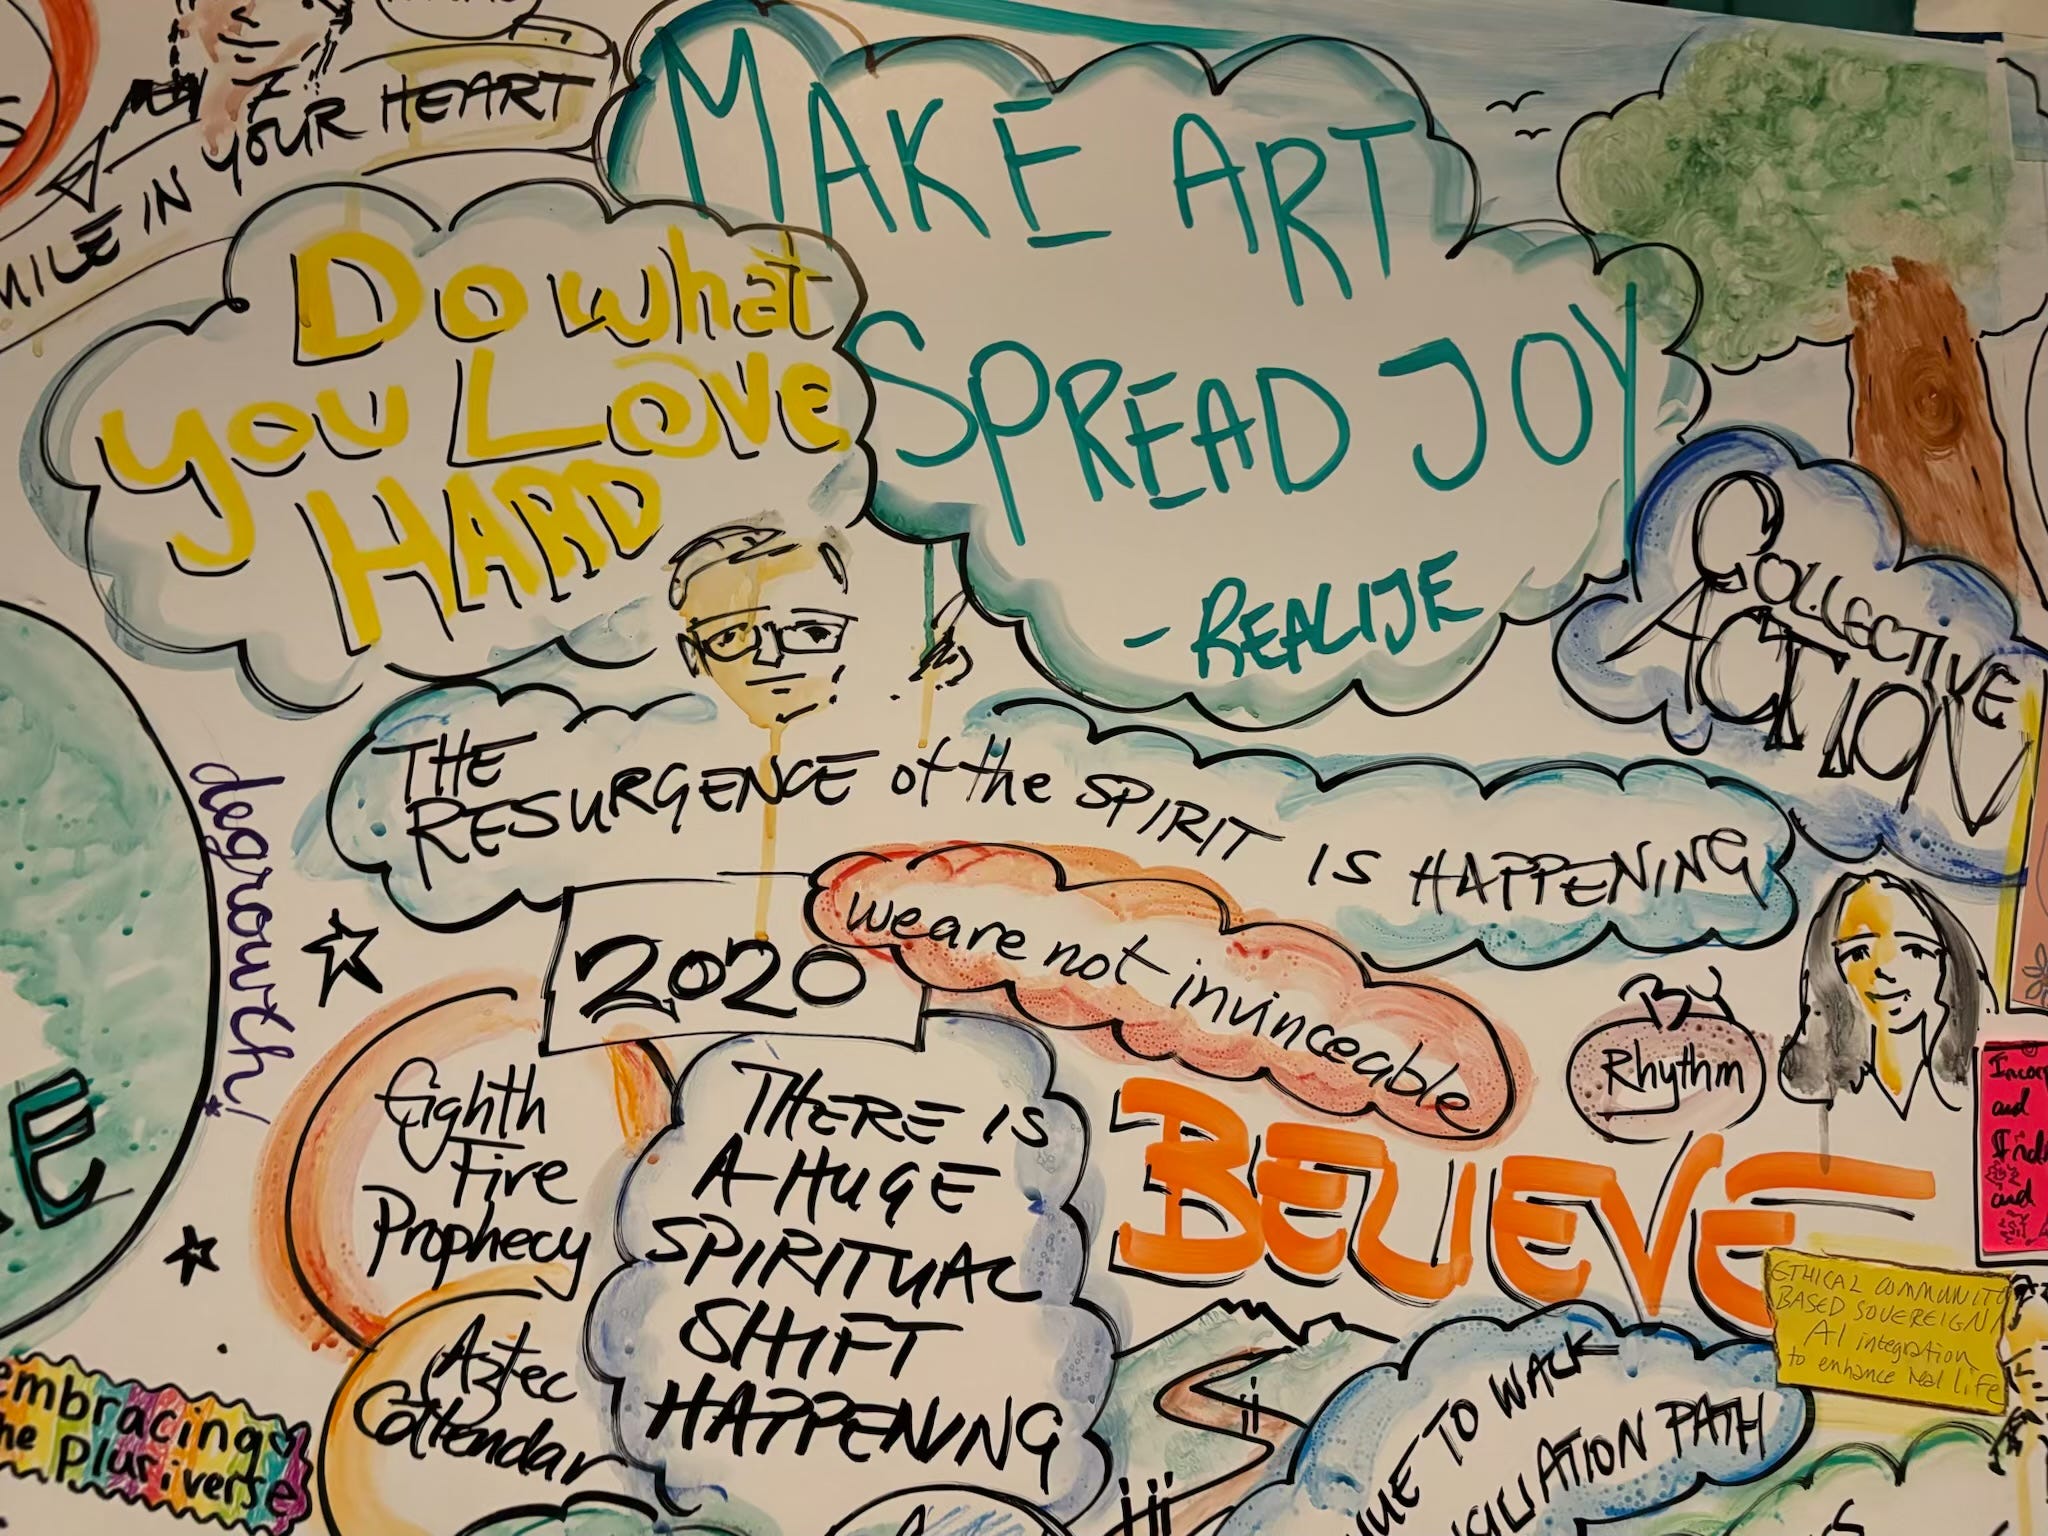 IN YOUR HEART
MAKE ART
SPREAD JOY
- REALIJE
Do what
you Love
HARD
COLLECTIVE
ACTION
THE
RESURGENCE of the SPIRIT IS HAPPENING
degrowth!
2020
we are not invinceable
By
Rhythm
Eighth
Fire
Prophecy
THERE IS
A HUGE
SPIRITUAL
SHIFT
HAPPENING
BELIEVE
and
and
ETHICAL COMMUNITY
BASED SOVEREIGN
AI integration
to enhance real life
Aztec
Callendar
TO WALK
PATH
embracing
the Pluriverse